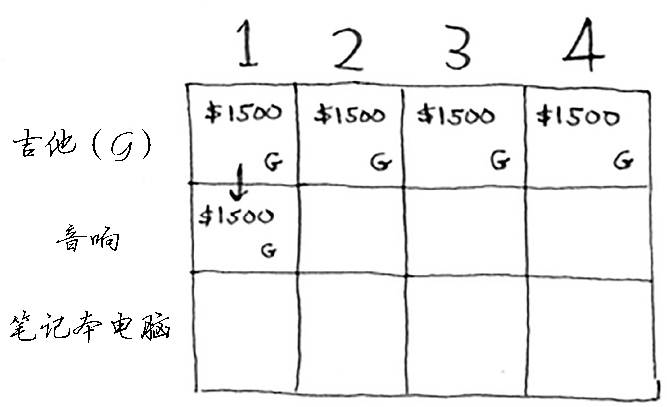 1 2 3 4
吉他（G） $1500 G $1500 G $1500 G $1500 G
音响 $1500 G
笔记本电脑